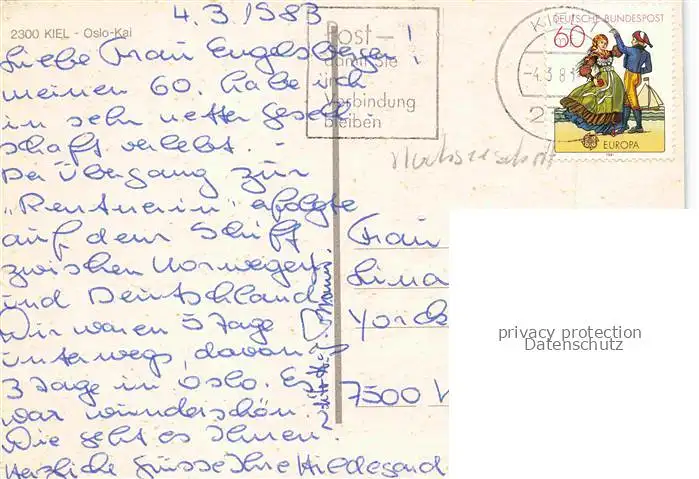 4.3.1983
2300 KIEL - Oslo-Kai
Liebe Frau Engelsberger!
meinen 60. habe ich
in sehr netter Gesell-
schaft verlebt. -
Der Übergang zur
"Rentnerin" erfolgte
auf dem Schiff
zwischen Norwegen
und Deutschland.
Wir waren 5 Tage
unterwegs, davon
3 Tage in Oslo. Es
war wunderschön.
Wie geht es Ihnen.
Herzliche Grüsse Ihre Hildegard
Post -
damit Sie
in
Verbindung
bleiben
KIEL
-4.3.83
2
DEUTSCHE BUNDESPOST
60
EUROPA
Frau
Lina
Yorck
7500
privacy protection
Datenschutz